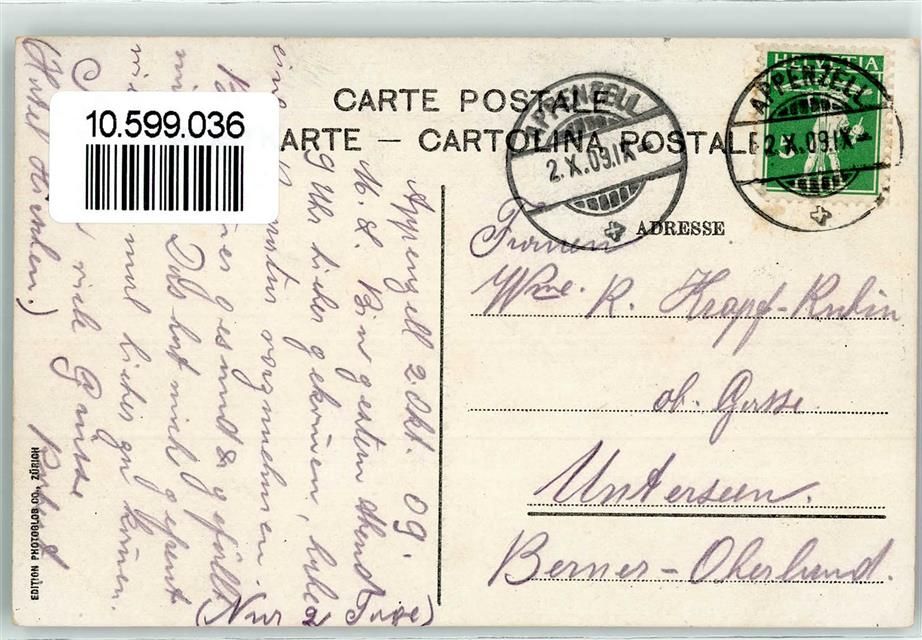 10.599.036
CARTE POSTALE
KARTE — CARTOLINA POSTALE
HELVETIA
5
APPENZELL
2.X.09.IX-
APPENZELL
2.X.09.IX-
ADRESSE
Frauen
Wwe. R. Krapf-Rubin
ob. Gasse.
Unterseen.
Berner-Oberland.
Appenzell 2. Okt. 09.
M. L. Bin gestern Abend
9 Uhr hieher gekomen, habe
eine vorgenehmen.
gesund & gefällt
mir Das hat mich gefreut
mal hieher zu könen.
viele Grüsse
(Nur 2 Tage)
EDITION PHOTOGLOB CO., ZÜRICH